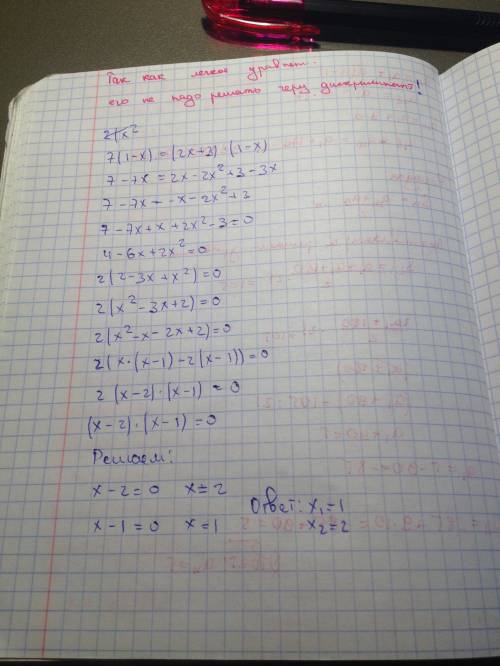 Так как легкое уравнен...
его не надо решать через дискриминант!
7(1-x) = (2x+3)·(1-x)
7-7x = 2x-2x²+3-3x
7-7x = -x-2x²+3
7-7x+x+2x²-3=0
4-6x+2x²=0
2(2-3x+x²)=0
2(x²-3x+2)=0
2(x²-x-2x+2)=0
2(x·(x-1)-2(x-1))=0
2(x-2)·(x-1)=0
(x-2)·(x-1)=0
Решаем:
x-2=0 x=2
x-1=0 x=1
Ответ: x₁=1
x₂=2